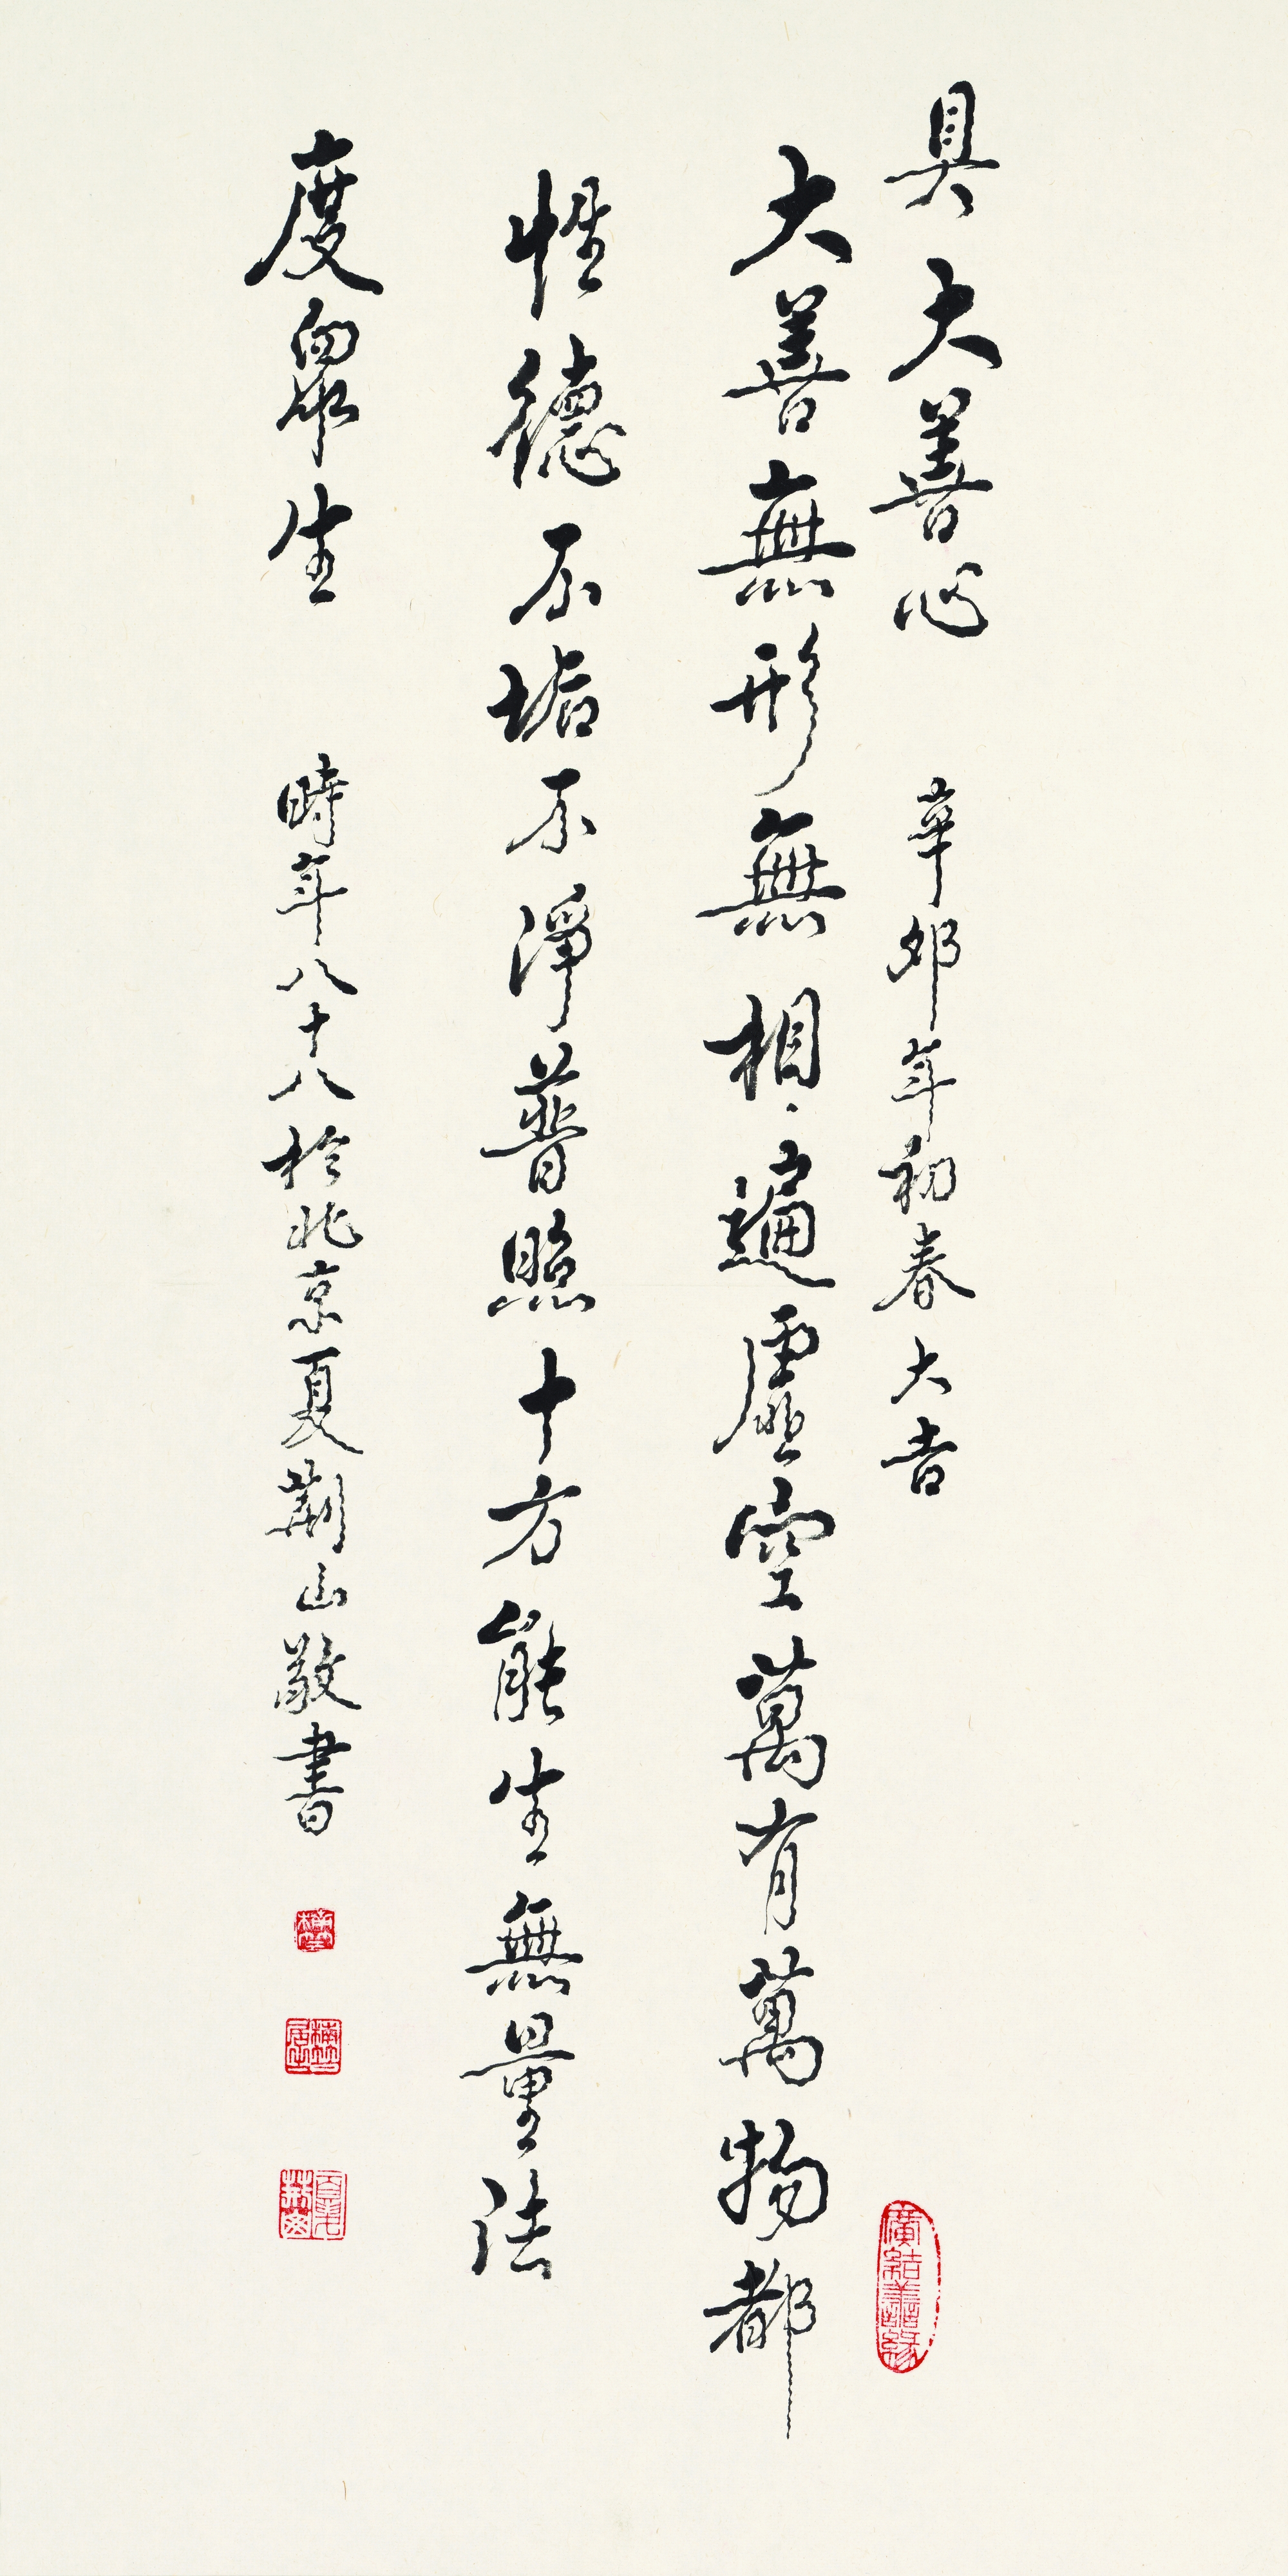 具大善心 辛卯年初春大吉
廣結善緣
大善無形無相遍虛空萬有萬物都
性德不垢不淨普照十方能生無量法
度眾生 時年八十八於北京夏荆山敬書